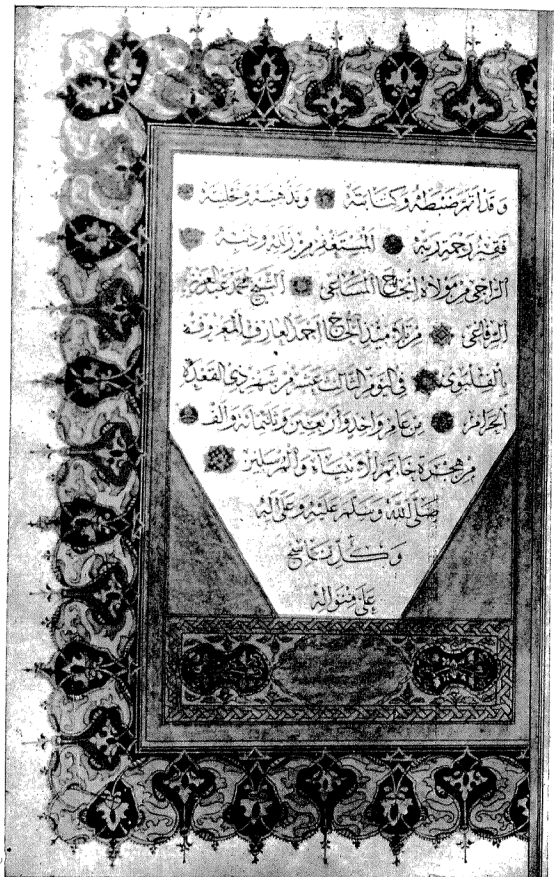 وَقَدْ أَتَمَّ ضَبْطَهُ وَكِتَابَتَهُ وَتَذْهِيبَهُ وَتَحْلِيَتَهُ
فَقِيرُ رَحْمَةِ رَبِّهِ الْمُسْتَغْفِرُ مِنْ زَلَلِهِ وَذَنْبِهِ
الرَّاجِي مِنْ مَوْلَاهُ إِنْجَاحَ الْمَسَاعِي الشَّيْخُ مُحَمَّد عَبْدُ الْعَزِيزِ
الرِّفَاعِي مِنْ تَلَامِيذِ الْحَاجِّ أَحْمَدَ الْعَارِفِ الْمَعْرُوفِ
بِالْفِلِبَوِي فِي الْيَوْمِ الثَّالِثِ عَشَرَ مِنْ شَهْرِ ذِي الْقَعْدَةِ
الْحَرَامِ مِنْ عَامِ وَاحِدٍ وَأَرْبَعِينَ وَثَلَثِمِائَةٍ وَأَلْفٍ
مِنْ هِجْرَةِ خَاتَمِ الْأَنْبِيَاءِ وَالْمُرْسَلِينَ
صَلَّى اللهُ وَسَلَّمَ عَلَيْهِ وَعَلَى آلِهِ
وَكُلِّ نَاسِجٍ
عَلَى مِنْوَالِهِ